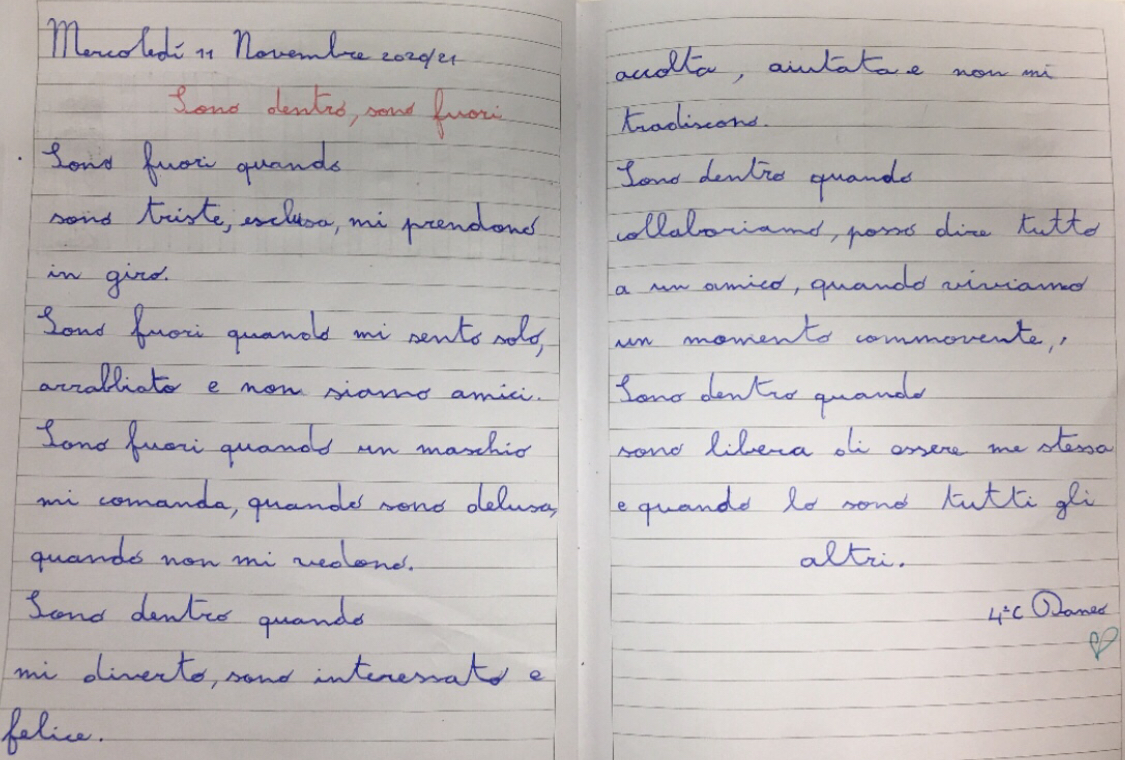 Mercoledí 11 Novembre 2020/21
Sono dentro, sono fuori
Sono fuori quando
sono triste, esclusa, mi prendono
in giro.
Sono fuori quando mi sento solo,
arrabbiato e non siamo amici.
Sono fuori quando un maschio
mi comanda, quando sono delusa,
quando non mi vedono.
Sono dentro quando
mi diverto, sono interessato e
felice.
accolta, aiutata e non mi
tradiscono.
Sono dentro quando
collaboriamo, posso dire tutto
a un amico, quando viviamo
un momento commovente,
Sono dentro quando
sono libera di essere me stessa
e quando lo sono tutti gli
altri.
4°C Daneo